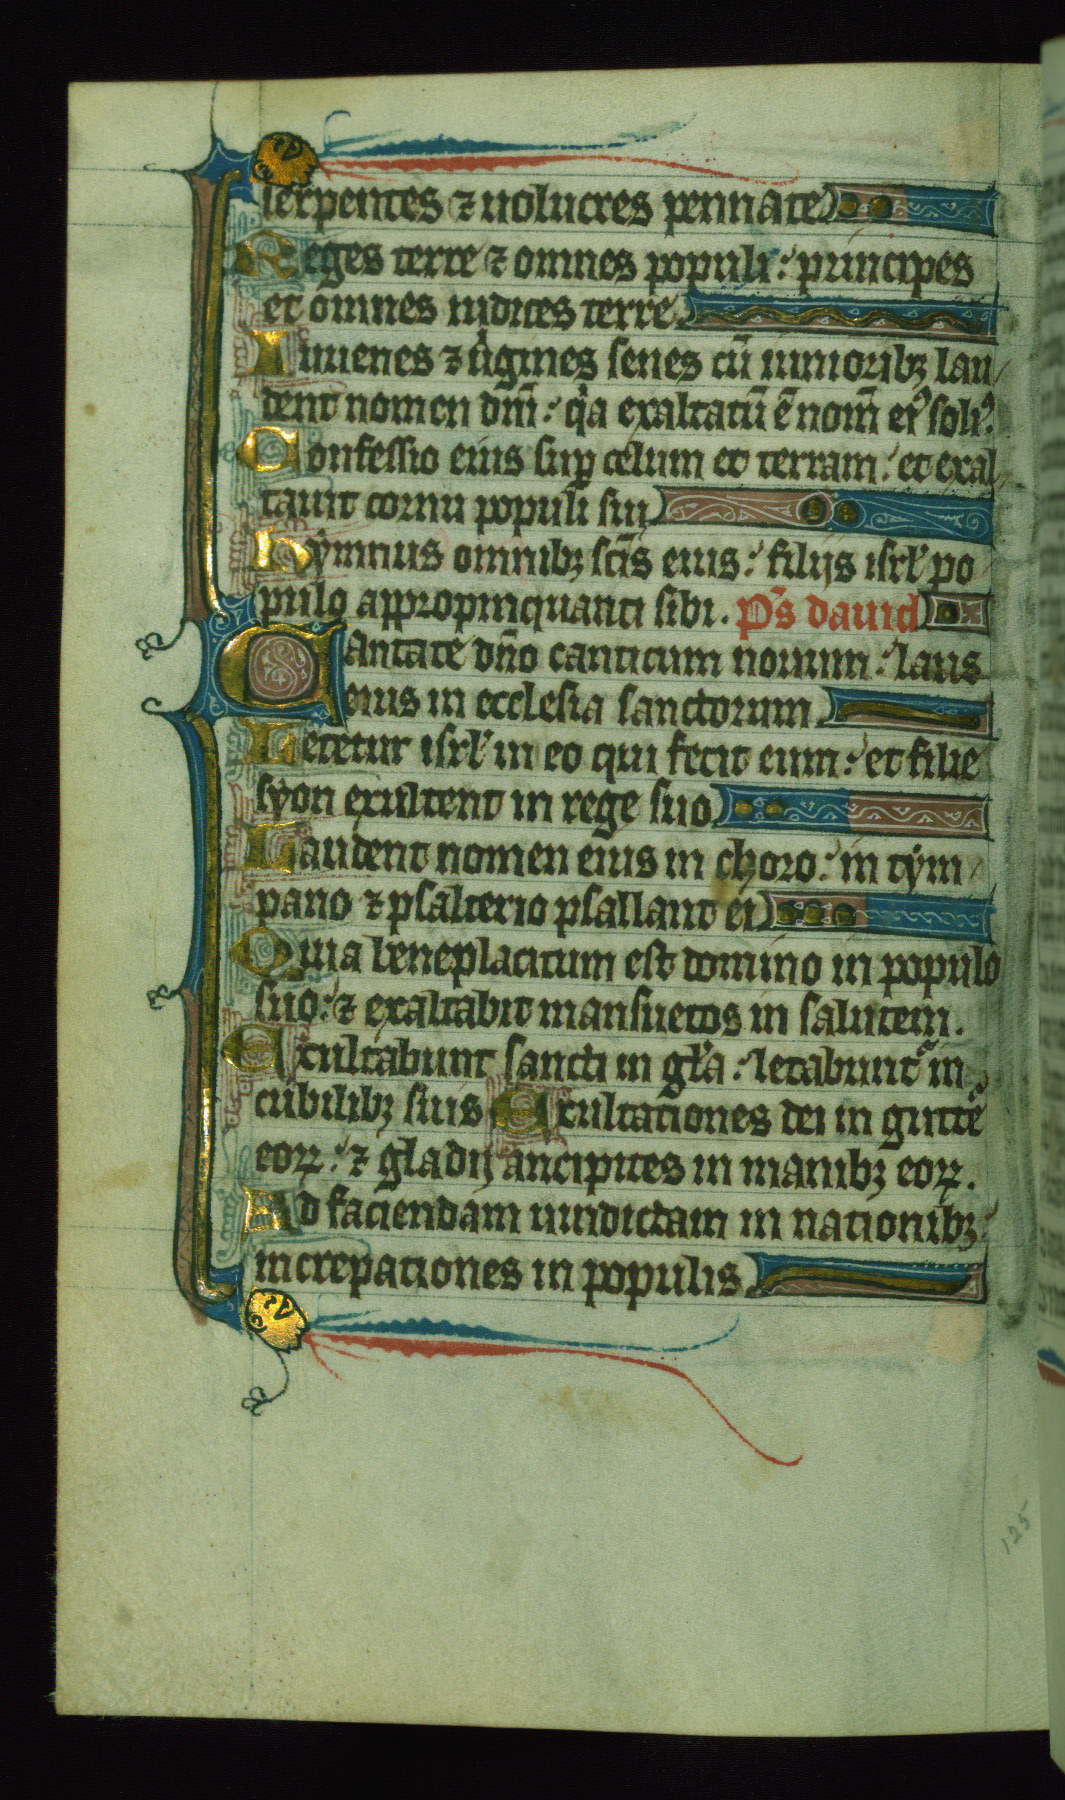 serpentes ⁊ uolucres pennate
Reges terre ⁊ omnes populi: principes
et omnes iudices terre
Iuuenes ⁊ uͥgines senes cū iunioribꝫ lau
dent nomen dnī: qͥa exaltatū ē nom̄ eiꝰ soliꝰ
Confessio eius sup̄ celum et terram: et exal
tauit cornu populi sui
Hymnus omnibꝫ scīs eius: filijs isrl̓ po
pulo appropinquanti sibi. Ps̄ dauid
Cantate dn̄o canticum nouum: laus
eius in ecclesia sanctorum
Letetur isrl̓ in eo qui fecit eum: et filie
syon exultent in rege suo
Laudent nomen eius in choro: in tym
pano ⁊ psalterio psallant ei
Quia beneplacitum est domino in populo
suo: ⁊ exaltabit mansuetos in salutem.
Exultabunt sancti in gl̓a: letabuntᷓ in
cubilibꝫ suis Exultationes dei in guttē
eoꝝ: ⁊ gladij ancipites in manibꝫ eoꝝ.
Ad faciendam uindictam in nationibꝫ:
increpationes in populis
125